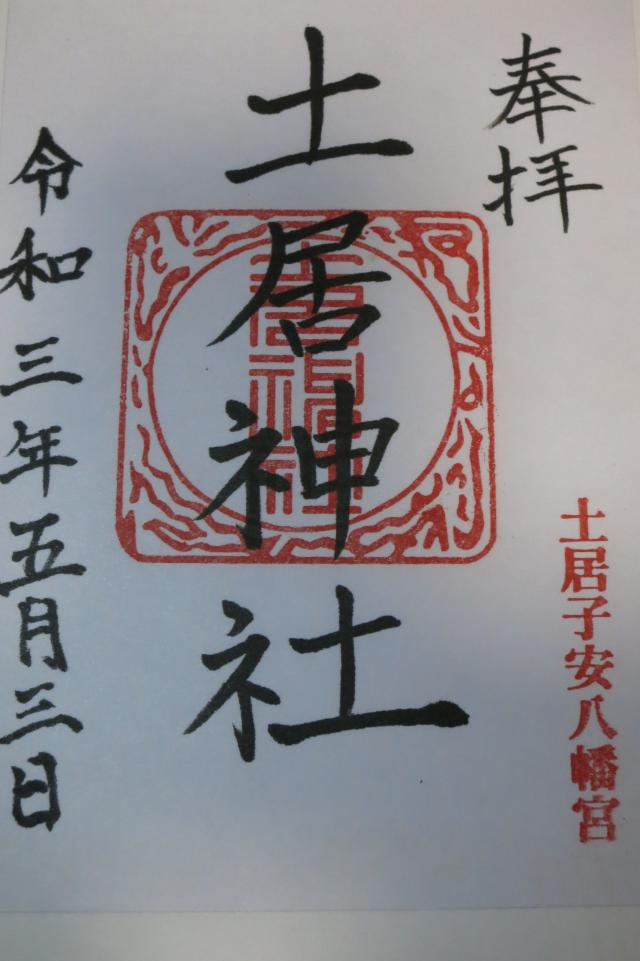 奉拝
土居子安八幡宮
土居神社
令和三年五月三日